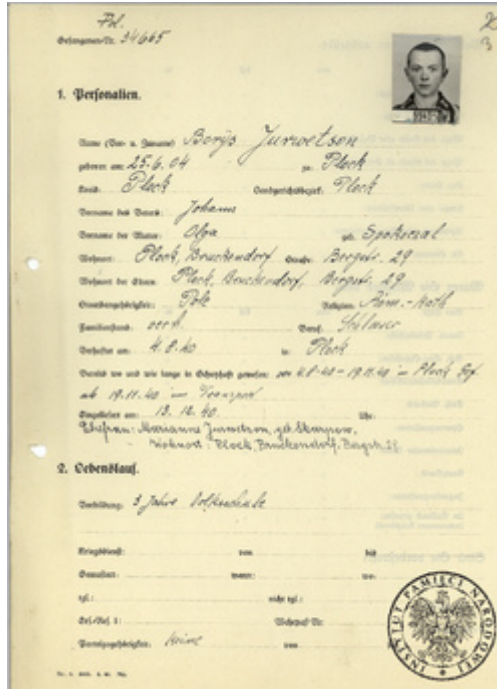 Pol.
Gefangenen-Nr. 34665
2
3
1. Personalien.
Name (Vor- u. Zuname) Borys Jurwetson
geboren am: 25.6.04 zu: Plock
Kreis: Plock Landgerichtsbezirk: Plock
Vorname des Vaters: Johann
Vorname der Mutter: Olga geb.
Wohnort: Plock, Bruckendorf, Straße: Bergstr. 29
Wohnort der Eltern: Plock, Bruckendorf, Bergstr. 29
Staatsangehörigkeit: Pole Religion: Röm.-Kath
Familienstand: verh. Beruf: Schlosser
Verhaftet am: 4.8.40 in: Plock
Bereits wo und wie lange in Schutzhaft gewesen: vom 4.8.40 - 19.11.40 in Plock
ab 19.11.40 im Transport
Eingeliefert am: 13.12.40 Uhr:
Ehefrau: Marianne Jurwetson, geb.
Wohnort: Plock, Bruckendorf, Bergstr. 29
2. Lebenslauf.
Vorbildung: 3 Jahre Volksschule
Kriegsdienst: von bis
Gemustert: wann: wo:
tgl.: nicht tgl.:
Ers./Res. I: Wehrpaß-Nr.
Parteizugehörigkeit: keine von
INSTYTUT PAMIĘCI NARODOWEJ